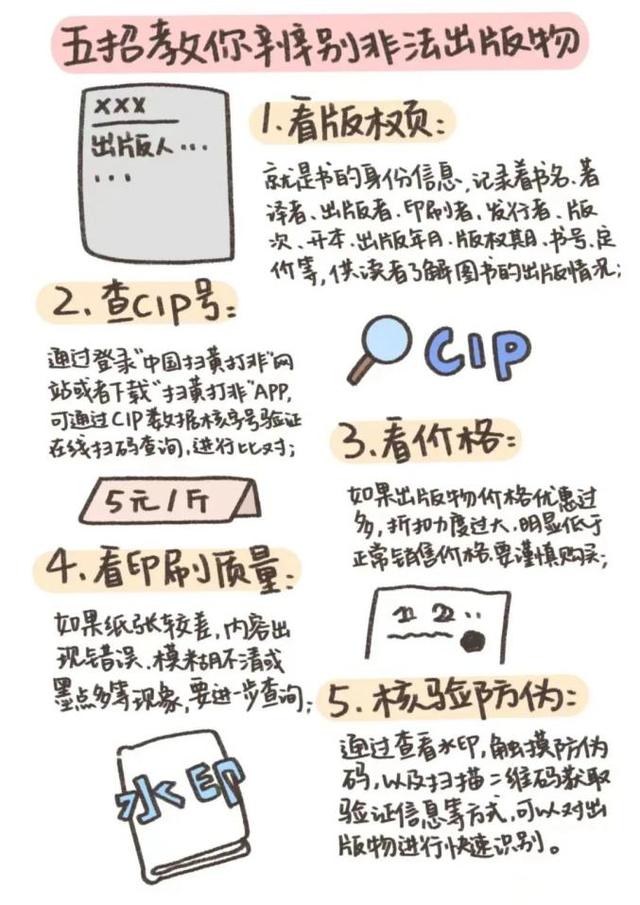 五招教你辨别非法出版物
XXX
出版人...
...
1.看版权页:
就是书的身份信息,记录着书名、著
译者、出版者、印刷者,发行者、版
次、开本、出版年月、版权期、书号、定
价等,供读者了解图书的出版情况;
2.查CIP号:
通过登录"中国扫黄打非"网
站或者下载"扫黄打非"APP,
可通过CIP数据核字号验证
在线扫码查询,进行比对;
CIP
3.看价格:
如果出版物价格优惠过
多,折扣力度过大、明显低于
正常销售价格.要谨慎购买;
5元1斤
4.看印刷质量:
如果纸张较差,内容出
现错误、模糊不清或
墨点多等现象,要进一步查询;
5.核验防伪:
通过查看水印,触摸防伪
码,以及扫描二维码获取
验证信息等方式,可以对出
版物进行快速识别。
水印